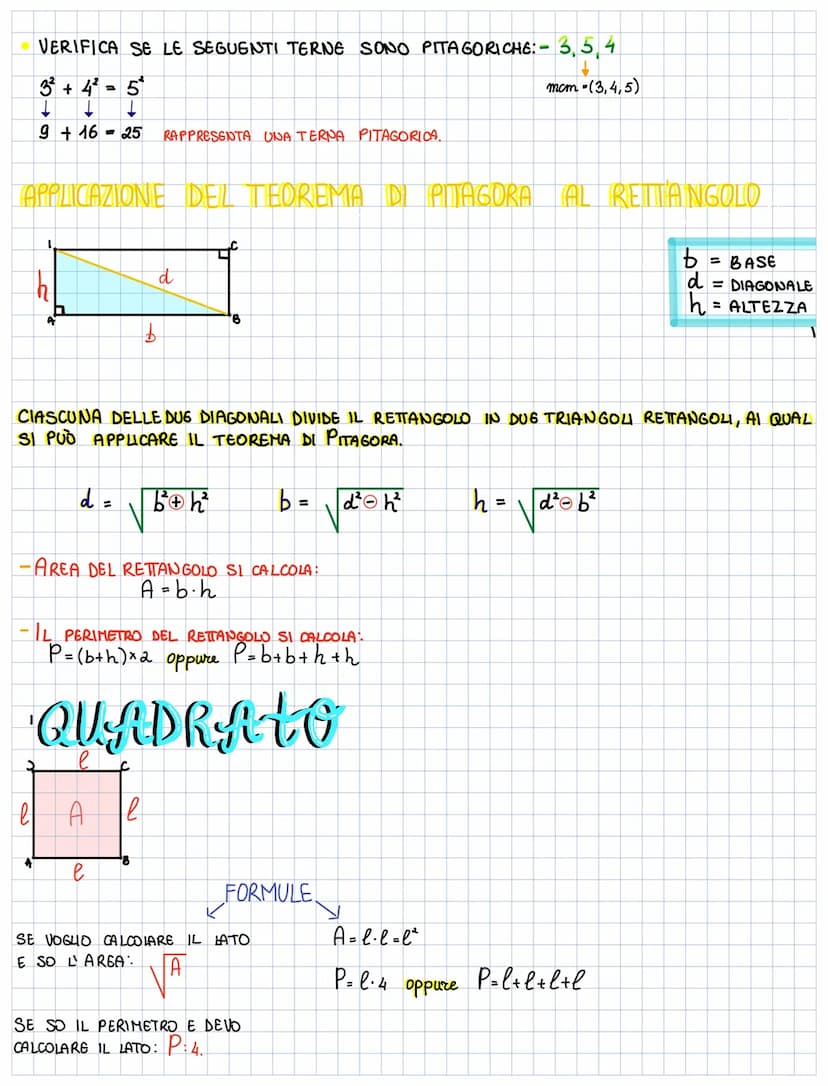 • VERIFICA SE LE SEGUENTI TERNE SONO PITAGORICHE: - 3, 5, 4
3² + 4² = 5²
mcm = (3, 4, 5)
↓ ↓ ↓
9 + 16 = 25 RAPPRESENTA UNA TERNA PITAGORICA.
APPLICAZIONE DEL TEOREMA DI PITAGORA AL RETTANGOLO
C
h
d
A
B
b
b = BASE
d = DIAGONALE
h = ALTEZZA
CIASCUNA DELLE DUE DIAGONALI DIVIDE IL RETTANGOLO IN DUE TRIANGOLI RETTANGOLI, AI QUAL
SI PUÒ APPLICARE IL TEOREMA DI PITAGORA.
d = √b²⊕h² b = √d²⊖h² h = √d²⊖b²
- AREA DEL RETTANGOLO SI CALCOLA:
A = b·h
- IL PERIMETRO DEL RETTANGOLO SI CALCOLA:
P=(b+h)×2 oppure P=b+b+h+h
QUADRATO
l
C
l A l
A B
l
FORMULE
SE VOGLIO CALCOLARE IL LATO
E SO L'AREA: √A
A = l·l = l²
P= l·4 oppure P=l+l+l+l
SE SO IL PERIMETRO E DEVO
CALCOLARE IL LATO: P:4.